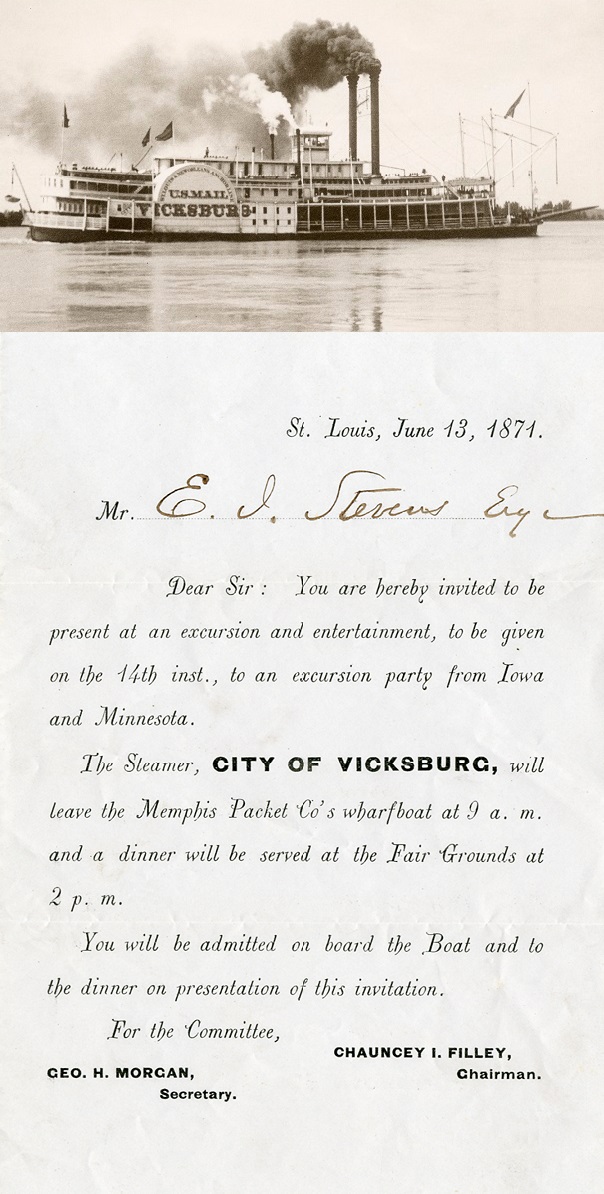 U.S. MAIL
VICKSBURG
St. Louis, June 13, 1871.
Mr. E. I. Stevens Esq
Dear Sir : You are hereby invited to be
present at an excursion and entertainment, to be given
on the 14th inst., to an excursion party from Iowa
and Minnesota.
The Steamer, CITY OF VICKSBURG, will
leave the Memphis Packet Co's wharfboat at 9 a. m.
and a dinner will be served at the Fair Grounds at
2 p. m.
You will be admitted on board the Boat and to
the dinner on presentation of this invitation.
For the Committee,
CHAUNCEY I. FILLEY,
Chairman.
GEO. H. MORGAN,
Secretary.